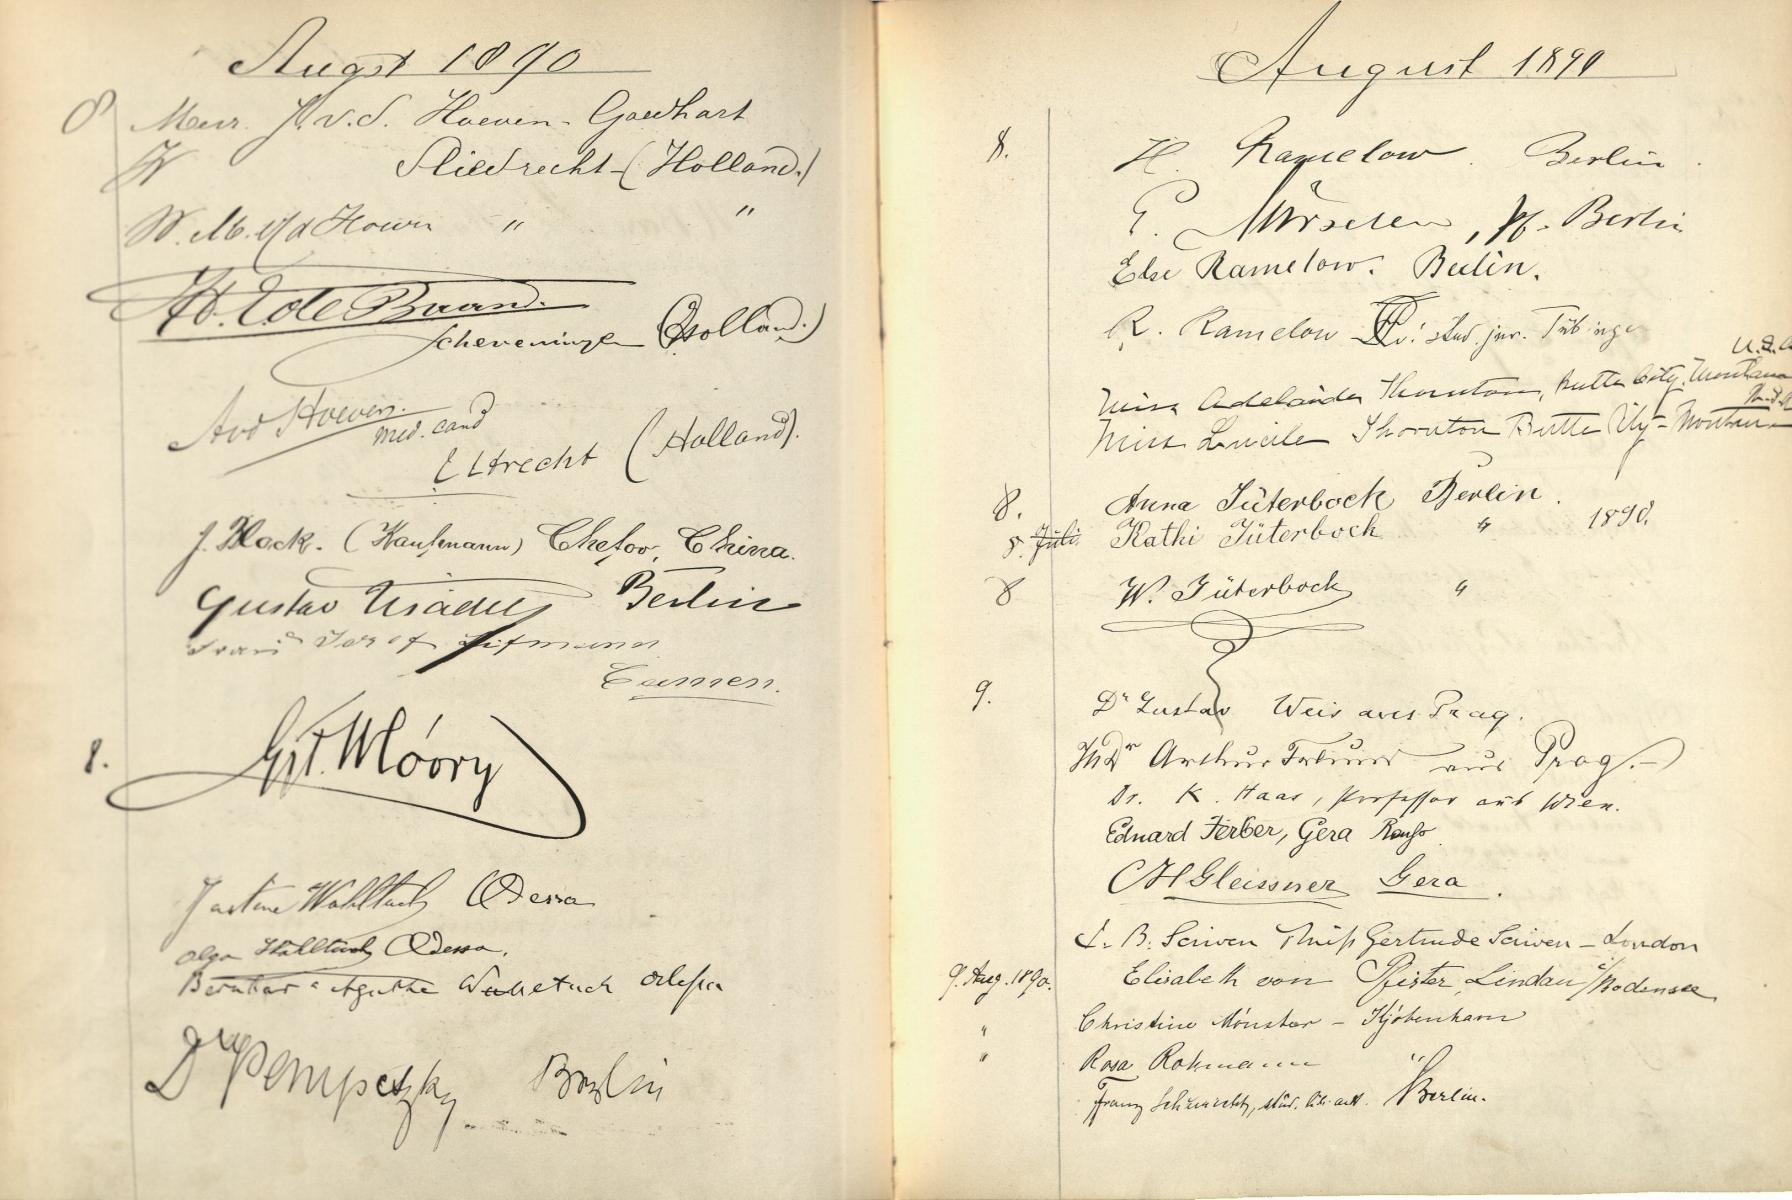 August 1890
8 Mevr. J. v. d. Hoeven-Goedhart
W Sliedrecht-(Holland.)
W. M. v/d Hoeven " "
Scheveningen (Holland.)
A v d Hoeven.
med. cand
Utrecht (Holland).
J. Block. (Kaufmann) Chefoo, China.
Gustav Berlin
Josef
8.
Justine Wahltuch Odessa
Olga Wahltuch Odessa.
Agathe Wahltuch Odessa
Dr Pempetzky Berlin
August 1890
8. H. Ramelow. Berlin.
P. Berlin
Else Ramelow. Berlin.
R. Ramelow stud. jur. Tübingen
U.S.A
Miss Adelaide Thornton, Butte City, Montana
Miss Lucile Thornton Butte City-Montana
8. Anna Jüterbock Berlin.
8. Juli Kathi Jüterbock " 1890.
8 W. Jüterbock "
9. Dr Gustav Weis aus Prag.
MDr Arthur aus Prag.-
Dr. K. Haas, Professor aus Wien.
Eduard Ferber, Gera Reuß.
C H Gleissner Gera.
L. B. Scriven Miss Gertrude Scriven - London
9. Aug. 1890. Elisabeth von Pfister, Lindau i/Bodensee
" Christine Mønster - Kjøbenhavn
" Rosa Rohmann "
Franz stud. Berlin.